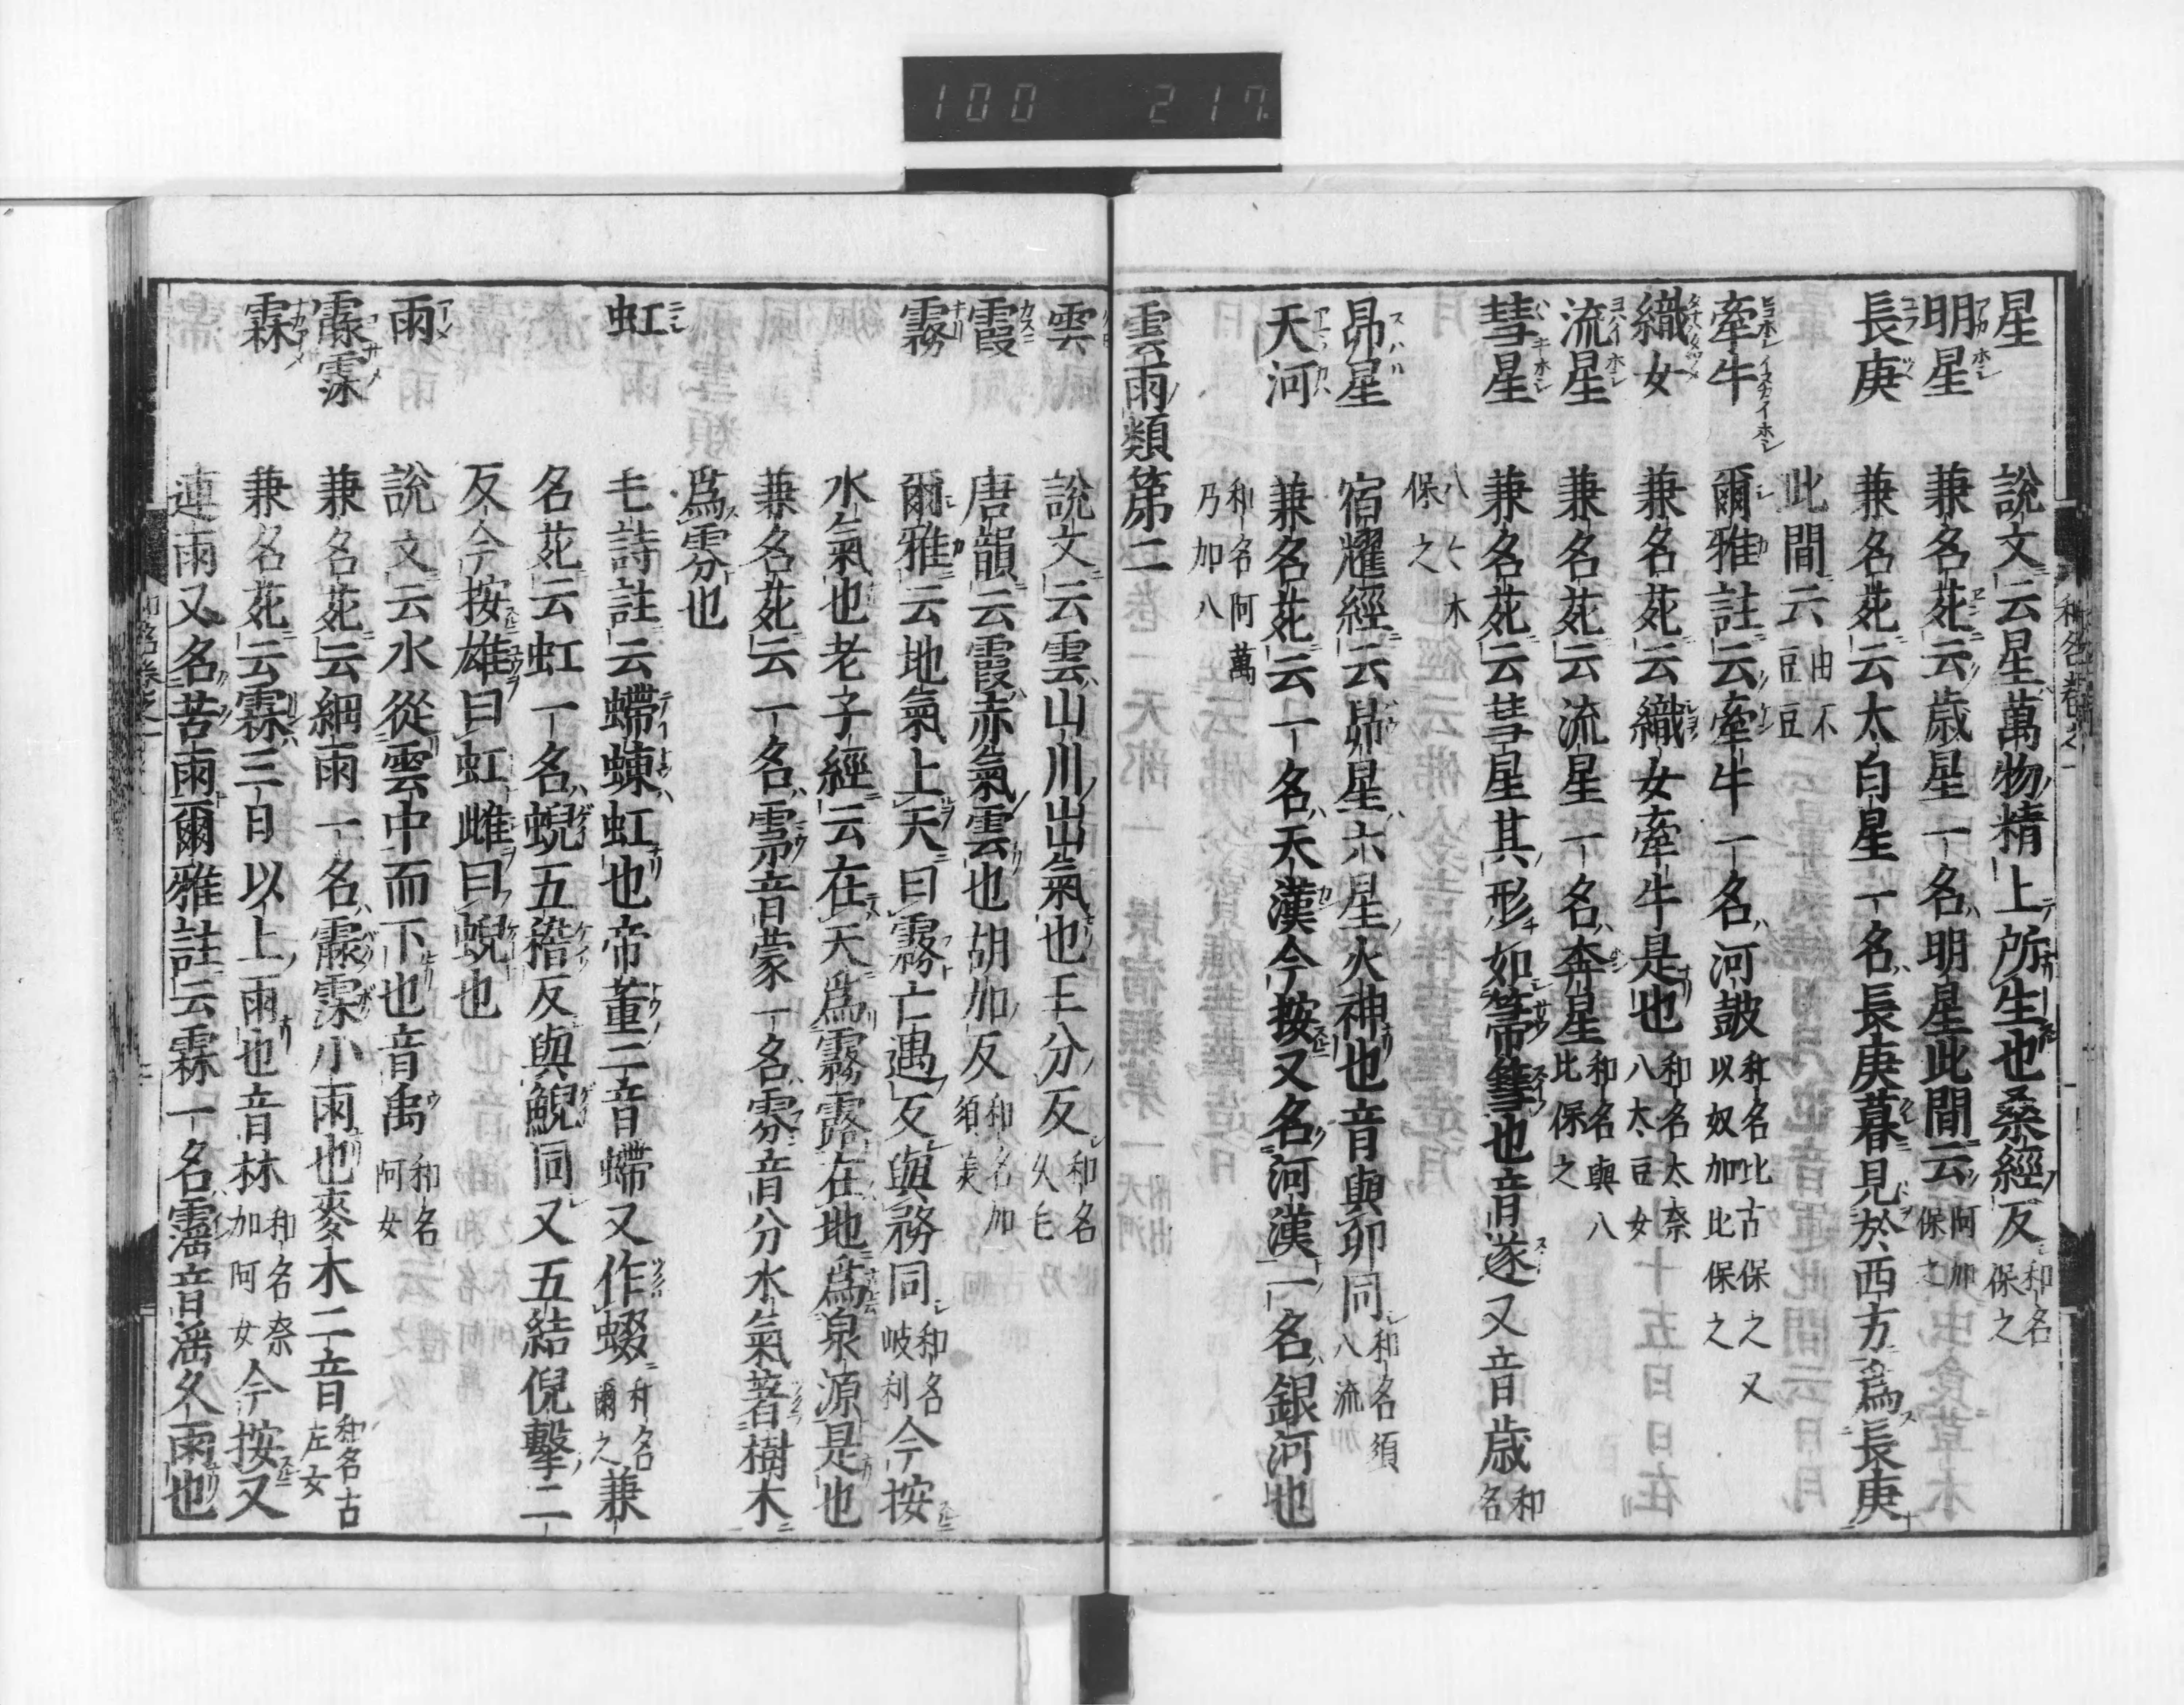 100 217
星 說文云星萬物精上所生也桑經反和名保之
明星 兼名苑云歲星一名明星此間云阿加保之
長庚 兼名苑云太白星一名長庚暮見於西方為長庚
此間云由不豆豆
牽牛 爾雅註云牽牛一名河皷和名比古保之又以奴加比保之
織女 兼名苑云織女牽牛是也和名太奈八太豆女
流星 兼名苑云流星一名奔星和名與八比保之
彗星 兼名苑云彗星其形如箒篲也音遂又音歲和名
八々木保之
昴星 宿耀經云昴星六星火神也音與卯同和名須八流
天河 兼名苑云一名天漢今按又名河漢一名銀河也
和名阿萬乃加八
雲雨類第二
雲 說文云雲山川出氣也王分反和名久毛
霞 唐韻云霞赤氣雲也胡加反和名加須美
霧 爾雅云地氣上天曰霧亡遇反與務同和名岐利今按
水氣也老子經云在天為霧露在地為泉源是也
兼名苑云一名雺音蒙一名雰音分水氣著樹木
為雰也
虹 毛詩註云螮蝀虹也帝董二音螮又作蝃和名爾之兼
名苑云虹一名蜺五稽反與鯢同又五結倪擊二
反今按雄曰虹雌曰蜺也
雨 說文云水從雲中而下也音禹和名阿女
霢霂 兼名苑云細雨一名霢霂小雨也麥木二音和名古左女
霖 兼名苑云霖三日以上雨也音林和名奈加阿女今按又
連雨又名苦雨爾雅註云霖一名霪音淫久雨也
和名卷之一